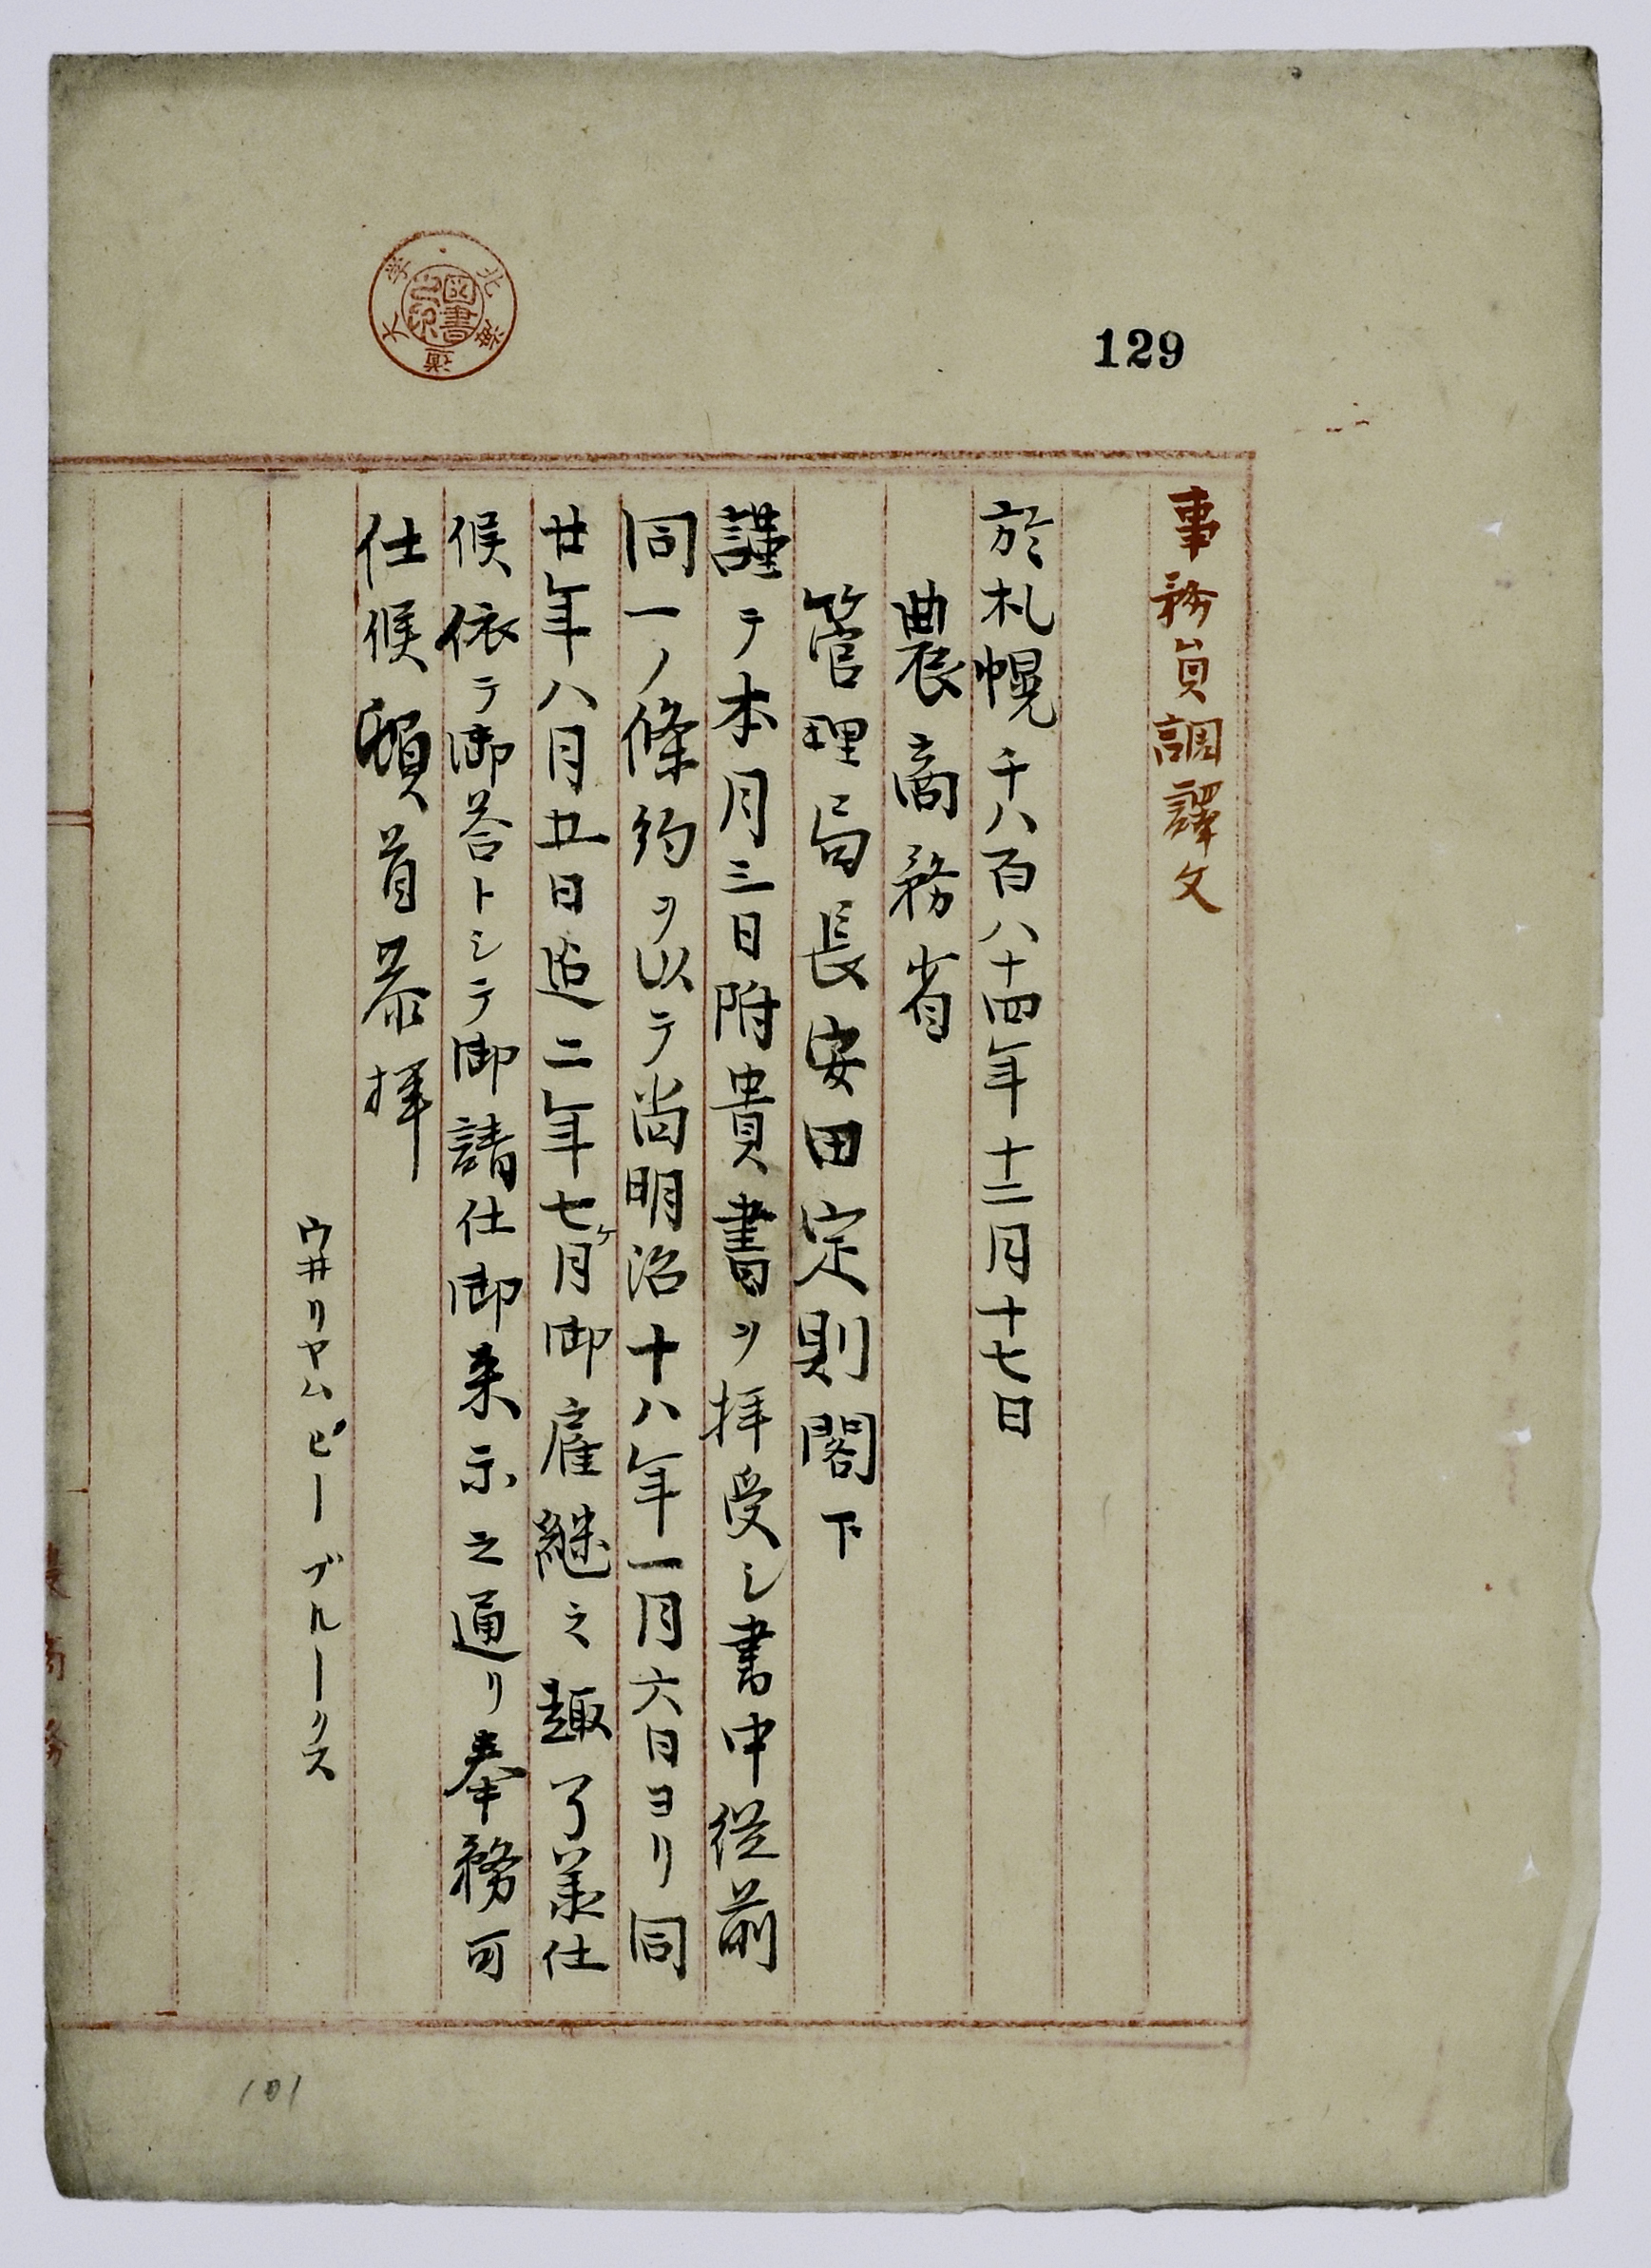 129
北海道大學
圖書之印
事務員調譯文
於札幌千八百八十四年十二月十七日
農商務省
管理局長安田定則閣下
謹テ本月三日附貴書ヲ拝受シ書中従前
同一ノ條約ヲ以テ尚明治十八年一月六日ヨリ同
廿年八月五日迠二年七ケ月御雇継之趣了羕仕
候依テ御荅トシテ御請仕御来示之通リ奉務可
仕候頓首恭拝
ウ井リヤムピーブルークス
農商務
101